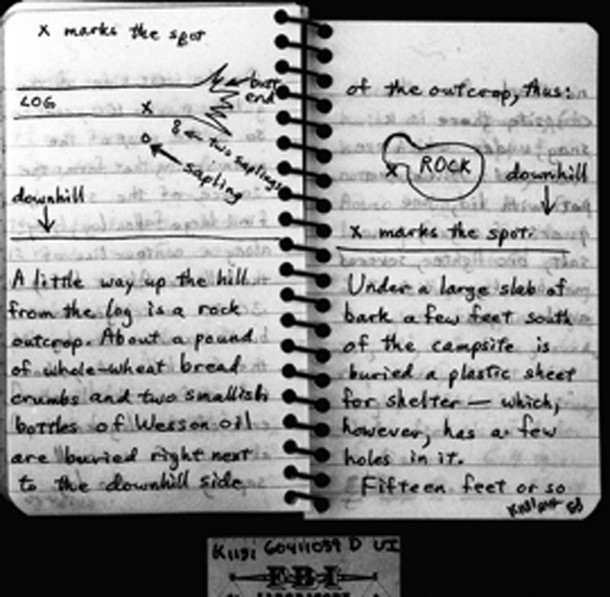 x marks the spot
butt
end
LOG
x
two saplings
sapling
downhill
A little way up the hill
from the log is a rock
outcrop. About a pound
of whole-wheat bread
crumbs and two smallish
bottles of Wesson oil
are buried right next
to the downhill side
of the outcrop, thus:
ROCK
x
downhill
x marks the spot.
Under a large slab of
bark a few feet south
of the campsite is
buried a plastic sheet
for shelter — which,
however, has a few
holes in it.
Fifteen feet or so
FBI
LABORATORY